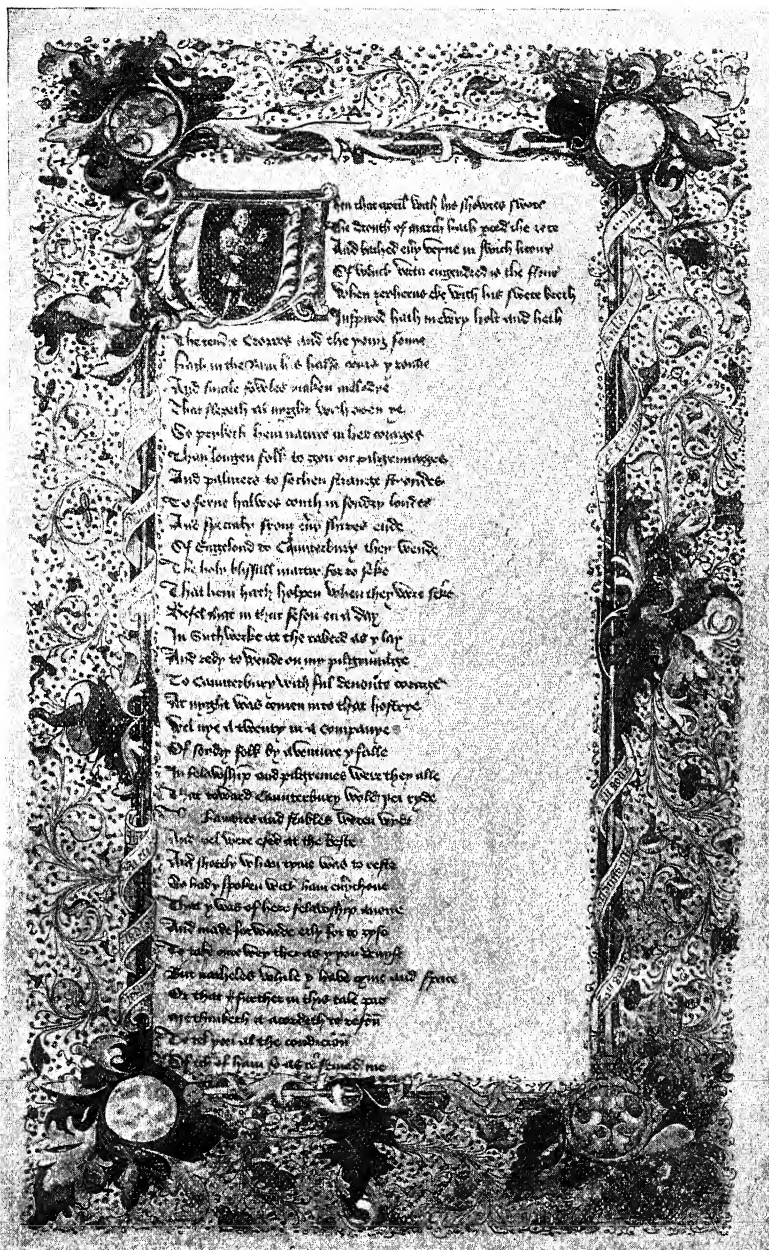 hen that april with his showres swote
The drouth of march hath peed the rote
And bathed euy veyne in swich licour
Of which vertu engendred is the flour
When zepherus eke with his swete breth
Inspired hath in euery holt and heth
The tendre Croppes and the yong sonne
Hath in the Ram his halfe cours y ronne
And smale fowles maken melodye
That slepeth al nyght with open ye
So priketh hem nature in her corages
Than longen folk to gon on pilgrimages
And palmers to sechen strange strondes
To ferne halwes couth in sondry londes
And specialy from euy shires ende
Of Engelond to Caunterbury they wende
The holy blissfull martir for to seke
That hem hath holpen when they were seke
Befel that in that seson on a day
In Suthwerke at the tabard as y lay
And redy to wende on my pilgrimage
To Caunterbury with ful deuoute corage
At nyght was comen into that hostrye
Wel nye a twenty in a companye
Of sondry folk by aventure y falle
In felawship and pilgrimes were they alle
That toward Caunterbury wold ryde
Chambres and stables weren wyde
And wel were esed at the beste
And shortly whan sonne was to reste
So hady spoken with ham euychone
That y was of here felawship anone
And made forwarde erly for to ryse
To take oure wey ther as y you deuyse
But natheles while y haue tyme and space
Or that y further in this tale pas
Me thinketh it acordeth to reson
To tel you al the condicion
Of ech of ham so as it semed me